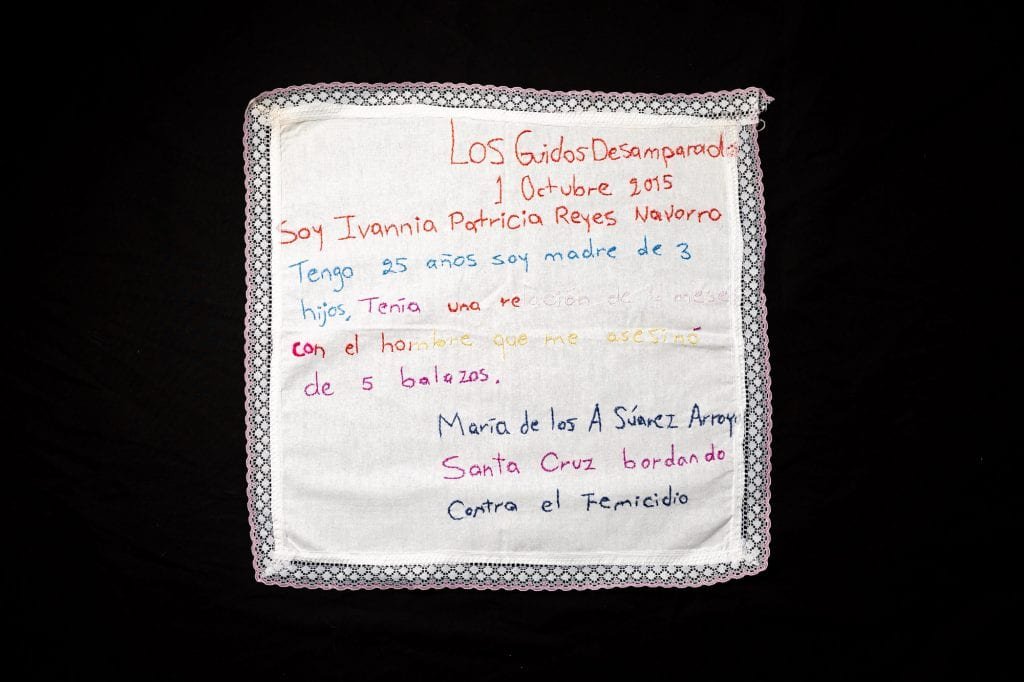 Los Guidos Desamparad
1 Octubre 2015
Soy Ivannia Patricia Reyes Navorro
Tengo 25 años soy madre de 3
hijos, Tenía una relación de 4 mese
con el hombre que me asesinó
de 5 balazos.
María de los A Súarez Arroy
Santa Cruz bordando
Contra el Femicidio